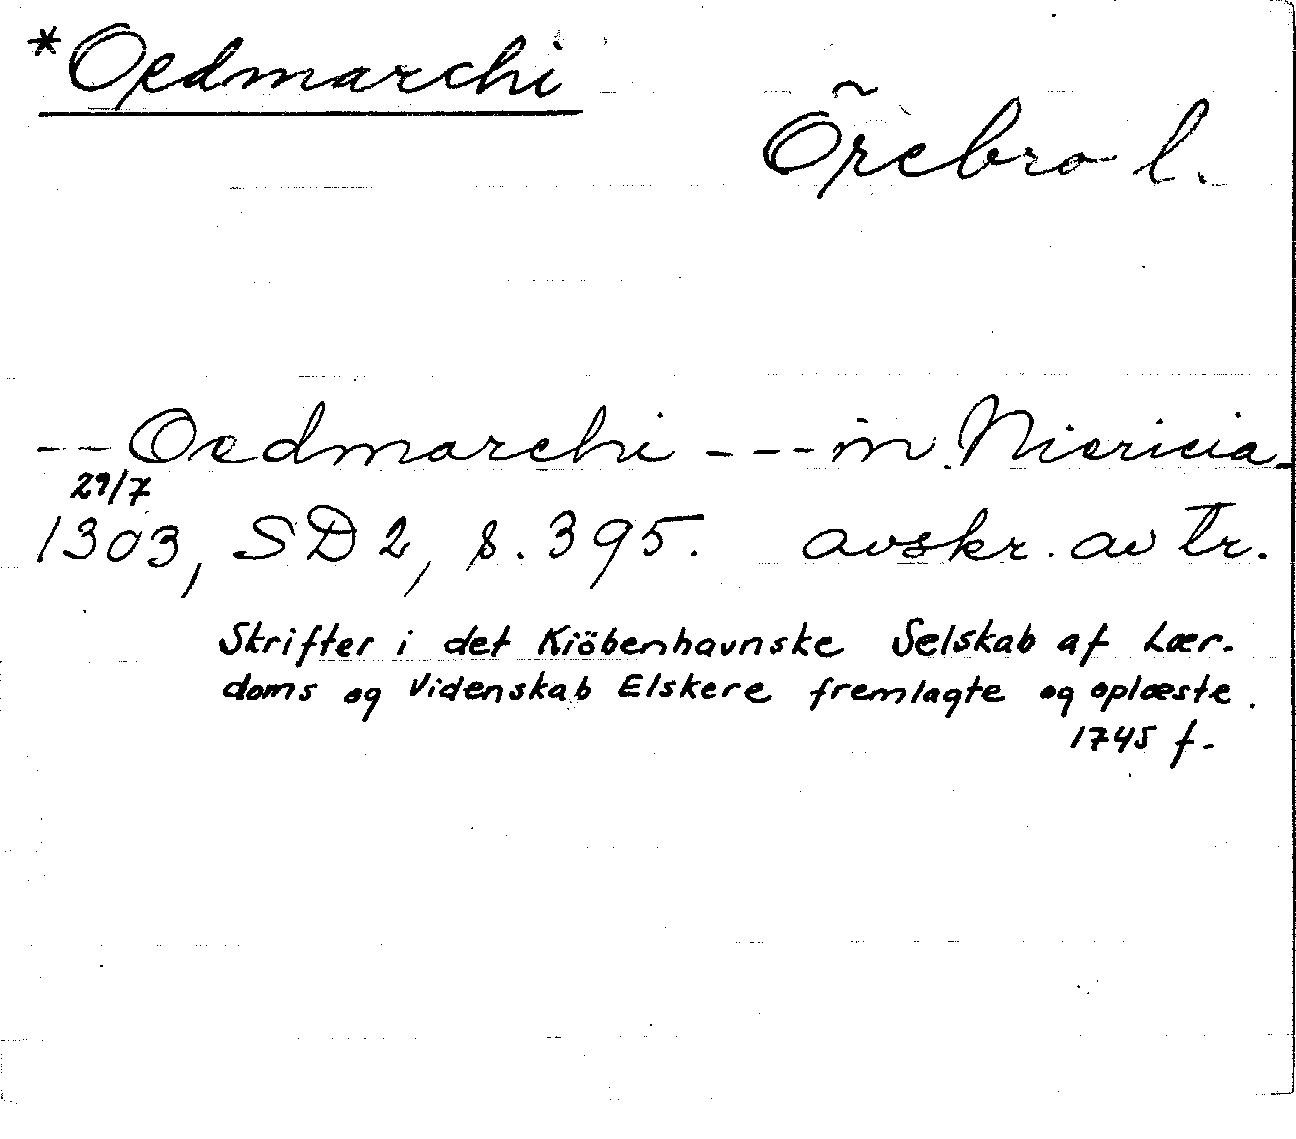 *Oedmarchi
Örebro l.
-- Oedmarchi --- in Niericia
29/7
1303, SD 2, s. 395. avskr. av tr.
Skrifter i det Kiöbenhavnske Selskab af Lær-
doms og Videnskab Elskere fremlagte og oplæste.
1745 f.